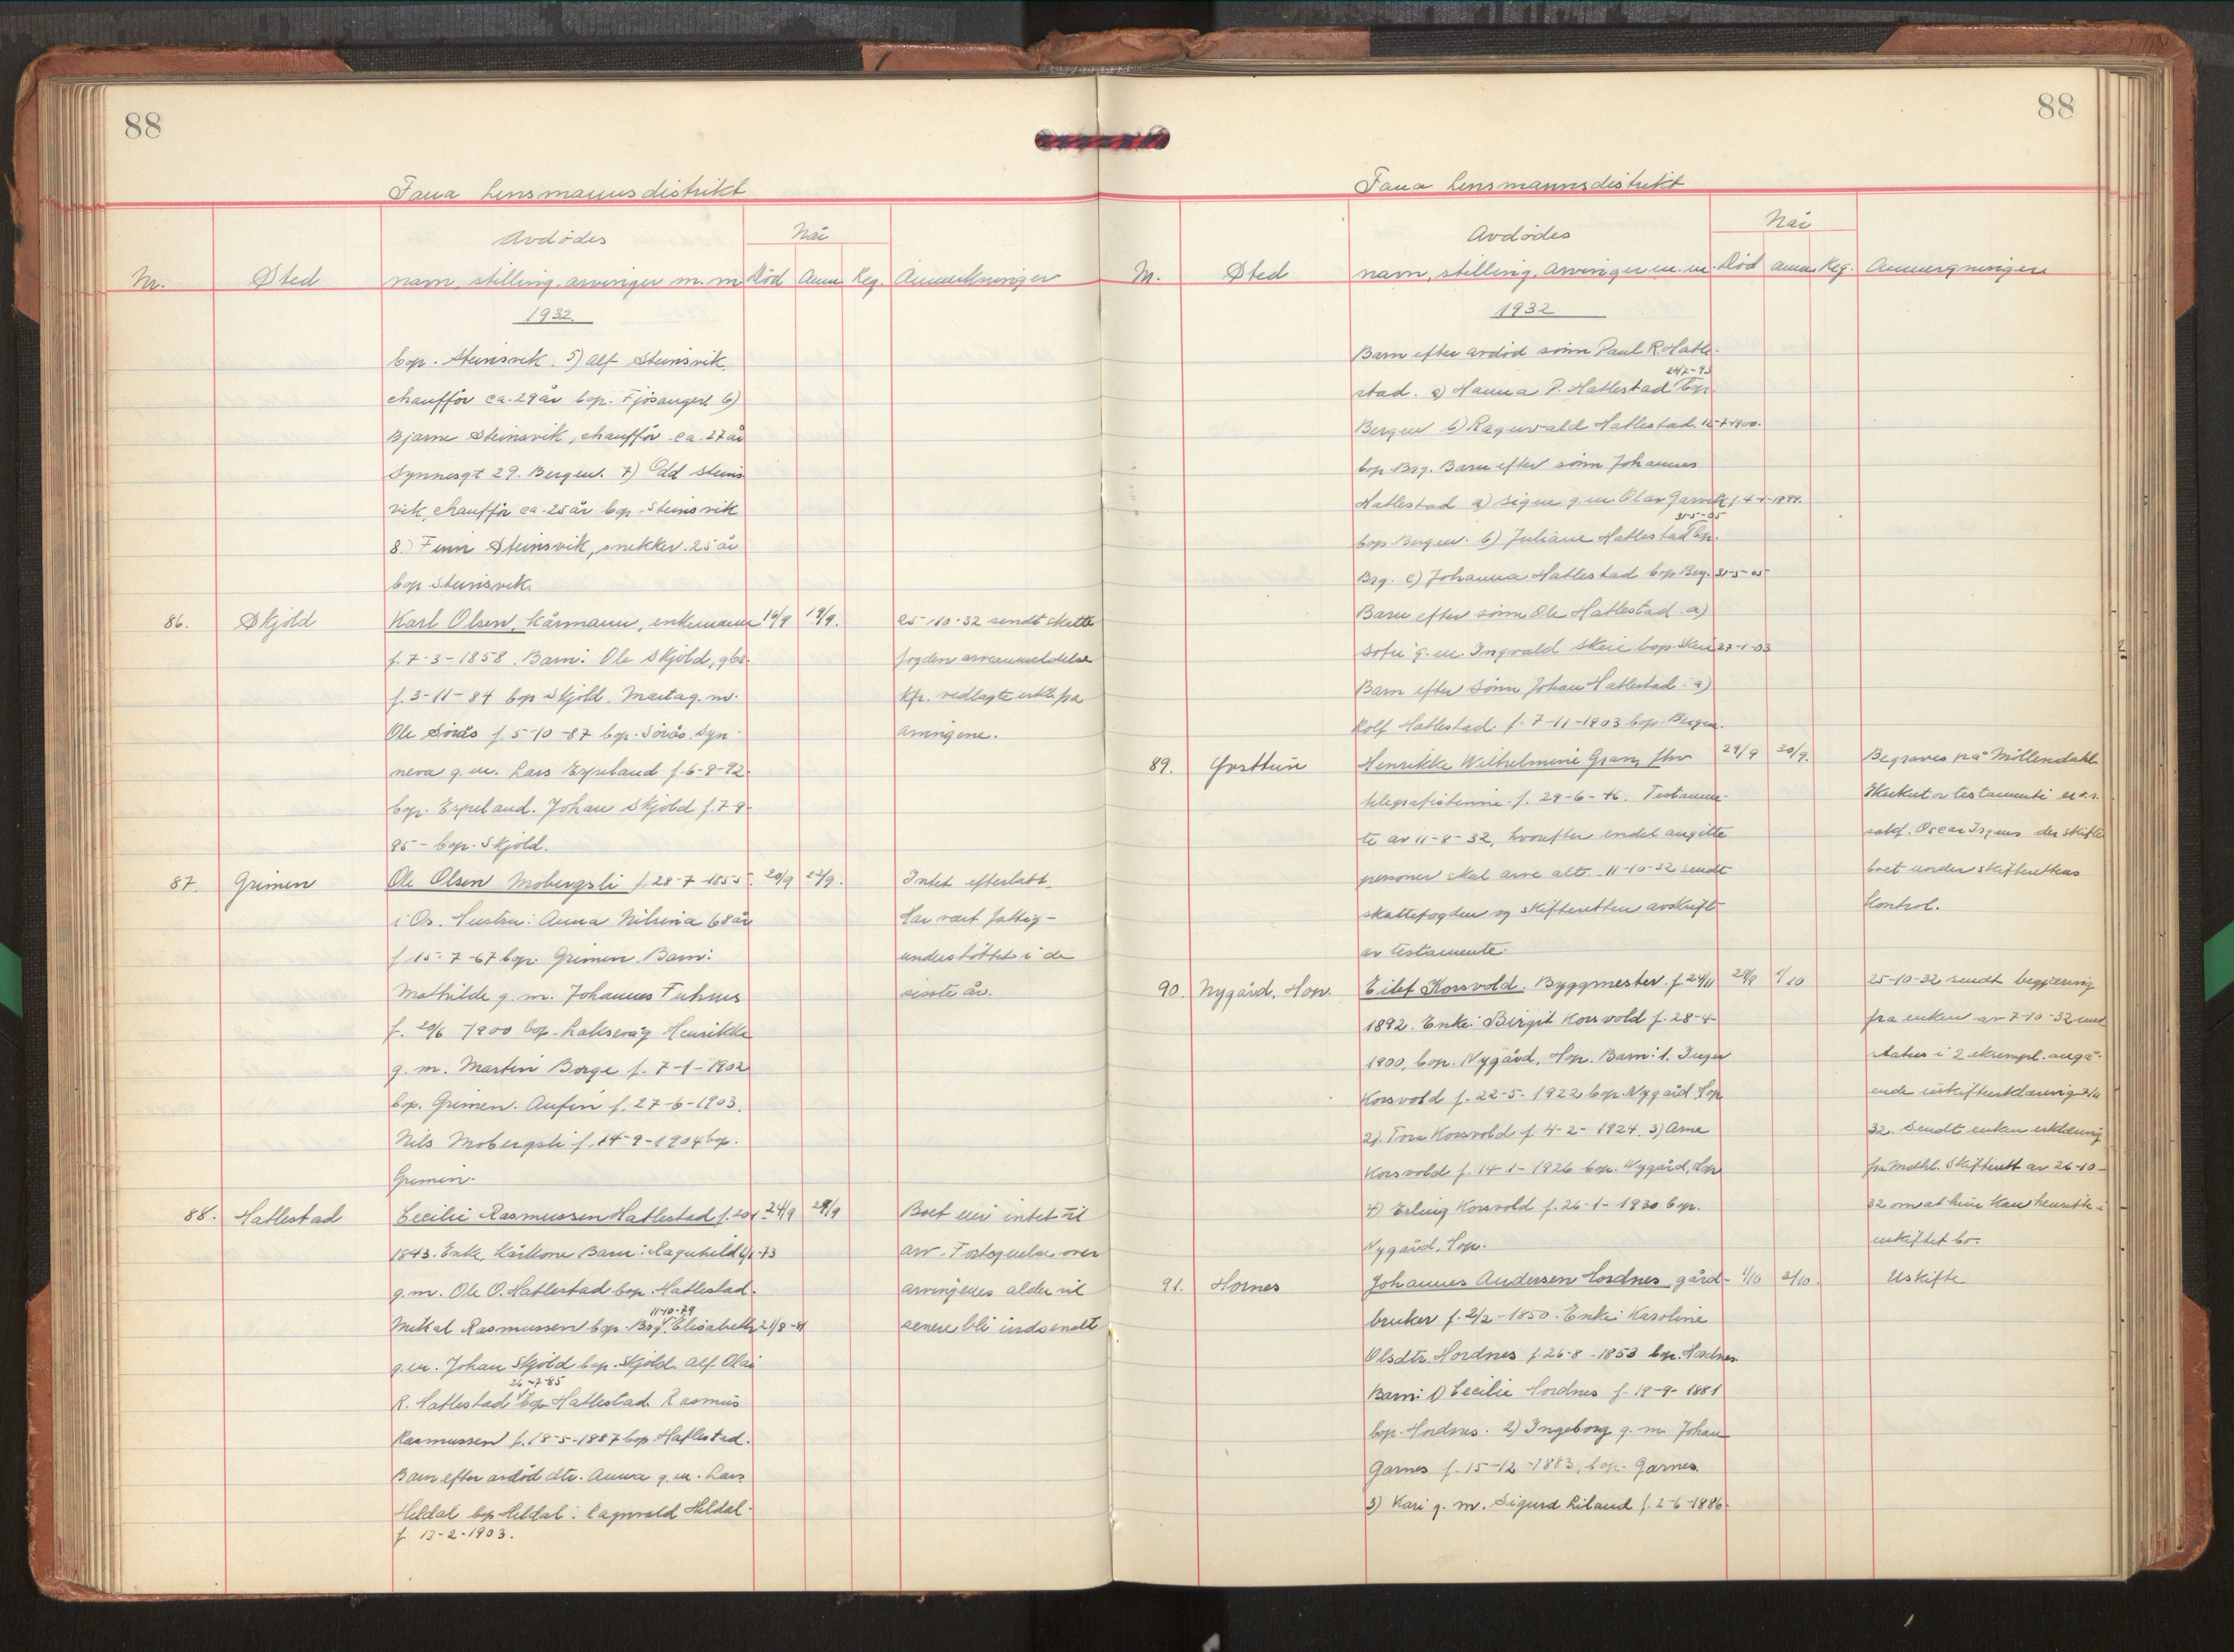 88
Fana Lensmannsdistrikt
Avdödes
Når
Nr. Sted navn, stilling, arvinger m. m. Död Anm. Reg. Anmerkninger
1932.
bop. Steinsvik. 5) Alf Steinsvik,
chaufför ca. 29 år bop. Fjösanger. 6)
Bjarne Steinsvik, chaufför ca. 27 år
Synnesgt 29. Bergen. 7) Odd Steins
vik, chaufför ca. 25 år bop. Steinsvik
8.) Finn Steinsvik, snekker. 25 år
bop Steinsvik.
86. Skjold Karl Olsen, kårmann, enkemann 19/9 25-10-32 sendt skatte
f. 7-3-1858. Barn: Ole Skjold, gbr. fogden arveanmeldelse
f. 3-11-84 bop Skjold. Marta g. m.
Ole Sörås f. 5-10-87 bop. Sörås. Syn arvingene.
neva g. m. Lars Espeland f. 6-9-92.
bop. Espeland. Johan Skjold f. 7-9-
95 - bop. Skjold.
87. Grimen Ole Olsen Mobergsli f. 28-7 1855. 20/9 22/9. Intet efterlatt.
i Os. Hustru: Anna Nilsina 68 år Har vært fattig-
f. 15-7-67 bop. Grimen. Barn: understöttet i de
Mathilde g. m. Johannes siste år.
f. 20/6 1900 bop. Laksevåg Henrikke
g. m. Martin Borge f. 7-1-1902
bop. Grimen. Anfin f. 27-6-1903.
Nils Mobergsli f. 14-9-1904 bop.
Grimen.
88. Hatlestad Cecilie Rasmussen Hatlestad f. 20/1- 24/9 29/9 Boet eier intet til
1843. Enke, kårkone Barn: Ragnhild -73 arv. Fortegnelse over
g. m. Ole O. Hatlestad bop. Hatlestad. arvingenes alder vil
11-10-79
Mikal Rasmussen bop. Brg. Elisabeth 21/8-81 senere bli indsendt
g. m. Johan Skjold bop. Skjold. Alf Olai
26-7-85
R. Hatlestad bop Hatlestad. Rasmus
Rasmussen f. 18-5-1887 bop. Hatlestad.
Barn efter avdöd dtr. Anna g. m. Lars
Heldal bop Heldal: Ragnvald Heldal.
f. 13-2-1903.
88
Fana Lensmannsdistrikt
Avdödes
Når
Nr. Sted navn, stilling, arvinger m. m. Död anm. Reg. Anmerkninger
1932
Barn efter avdöd sönn Paul R. Hatle-
stad. a) Hanna P. Hatlestad bop.
Bergen b) Ragnvald Hatlestad 12-7-1900.
bop. Brg. Barn efter sönn Johannes
Hatlestad a) Signe g. m. Olav Garvik
31-5-05
bop. Bergen. b) Juliane Hatlestad bop.
Brg. c) Johanna Hatlestad bop Brg. 31-5-05
Barn efter sönn Ole Hatlestad a)
Sofie g. m. Ingvald Skeie bop. Skeie 27-1-03
Barn efter sönn Johan Hatlestad: a)
Rolf Hatlestad. f. 7-11-1903 bop. Bergen.
89. Henrikke Wilhelmine Gran, fhv 29/9 30/9. Begraves på Möllendahl
telegrafistinne f. 29-6-46. Testamen- Eksekutor testamenti er o.r.
te av 11-8-32, hvorefter endel angitte sakf. Oscar Irgens der skifter
personer skal arve alt. 11-10-32 sendt boet under skifterettens
skattefogden og skifteretten avskrift kontrol.
av testamente.
90. Nygård, Hop. Eilef Korsvold. Byggmester. f. 24/11 29/9 1/10 25-10-32 sendt begjæring
1892. Enke: Birgit Korsvold f. 28-4- fra enken av 7-10-32 med
1900, bop. Nygård, Hop. Barn: 1. Inger status i 2 eksempl. angå-
Korsvold f. 22-5-1922 bop. Nygård Hop ende uskifteerklæring
2). Tora Korsvold f. 4-2-1924. 3) Arne 32. Sendt enken erklæring
Korsvold f. 14-1-1926 bop. Nygård, Hop fra Mdhl. Skifterett av 26-10-
4) Erling Korsvold f. 26-1-1930 bop. 32 om at hun kan hensitte i
Nygård, Hop. uskiftet bo.
91. Hornes Johannes Andersen Hordnes gård- 1/10 3/10. Uskifte
bruker f. 2/2-1850. Enke: Karoline
Olsdtr. Hordnes f. 26-8-1853 bop. Hordnes
Barn: 1) Cecilie Hordnes f. 19-9-1881
bop. Hordnes. 2) Ingeborg g. m. Johan
Garnes f. 15-12-1883, bop. Garnes.
3) Kari g. m. Sigurd Liland f. 2-6-1886.